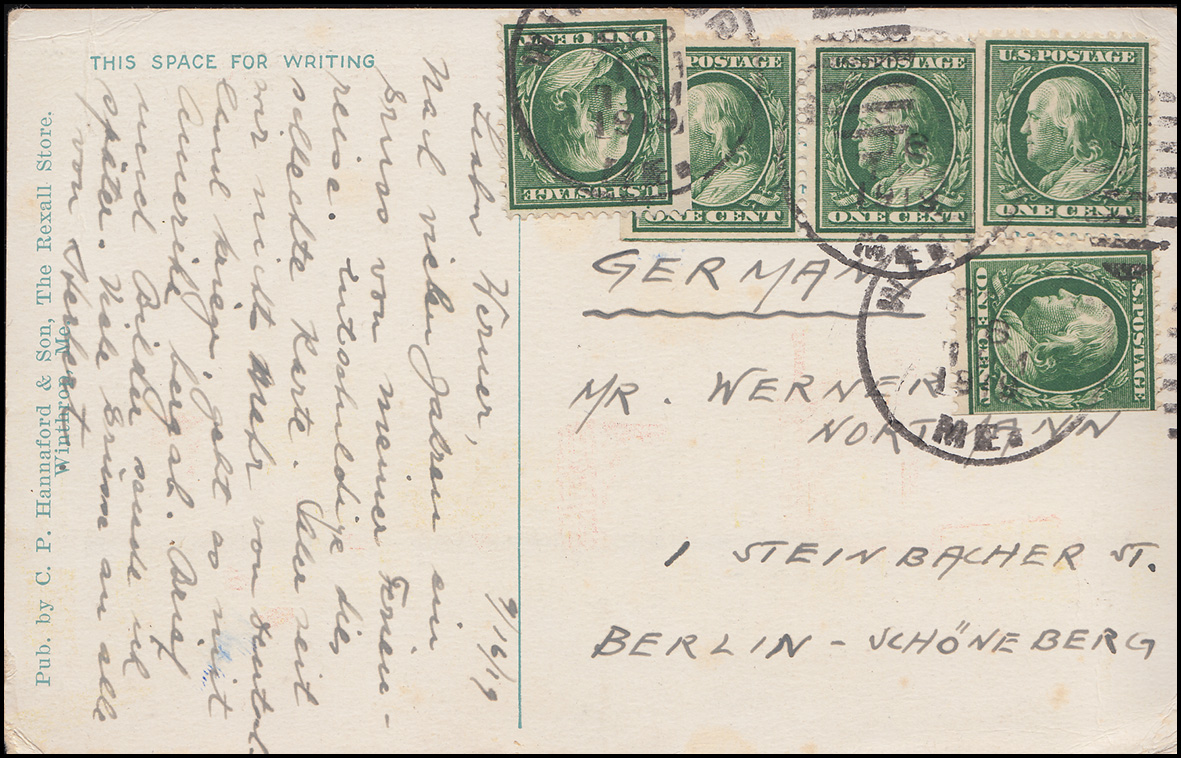 THIS SPACE FOR WRITING
Pub. by C. P. Hannaford & Son, The Rexall Store.
Winthrop, Me.
9/16/19
Lieber Werner,
Nach vielen Jahren ein
Gruss von meiner Ferien-
reise. Entschuldige die
schlechte Karte. Aber seit
wir nicht mehr von
Krieg geht es mit
Amerika bergab. Brief
und Bilder sende ich
später. Viele Grüsse an alle
von Herbert
U.S. POSTAGE
ONE CENT
U.S. POSTAGE
ONE CENT
U.S. POSTAGE
ONE CENT
U.S. POSTAGE
ONE CENT
U.S. POSTAGE
ONE CENT
1919
ME.
GERMANY
MR. WERNER
NORTMANN
1 STEINBACHER ST.
BERLIN - SCHÖNEBERG